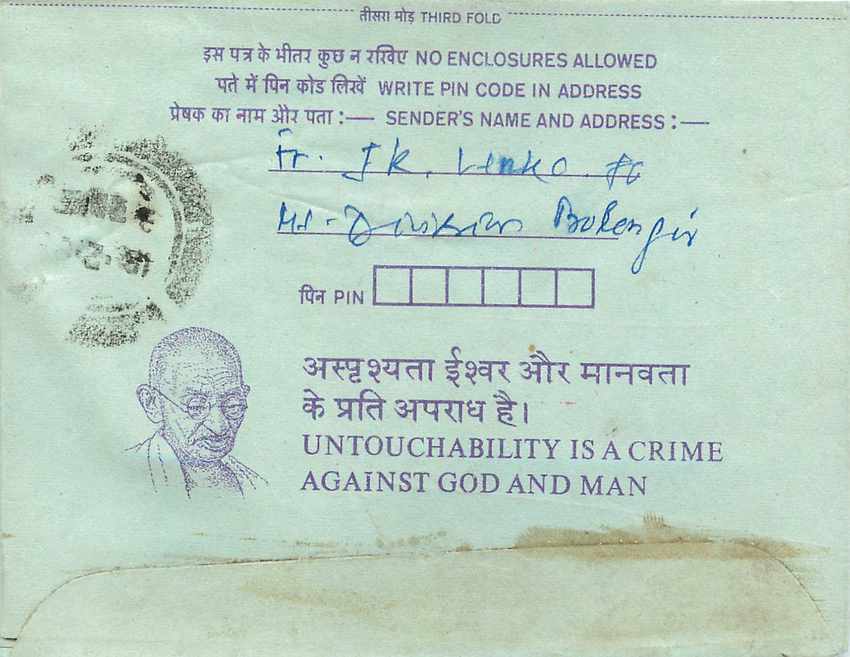 तीसरा मोड़ THIRD FOLD
इस पत्र के भीतर कुछ न रखिए NO ENCLOSURES ALLOWED
पते में पिन कोड लिखें WRITE PIN CODE IN ADDRESS
प्रेषक का नाम और पता :— SENDER'S NAME AND ADDRESS :—
Fr. J.K.
Bolengir
पिन PIN
अस्पृश्यता ईश्वर और मानवता
के प्रति अपराध है।
UNTOUCHABILITY IS A CRIME
AGAINST GOD AND MAN